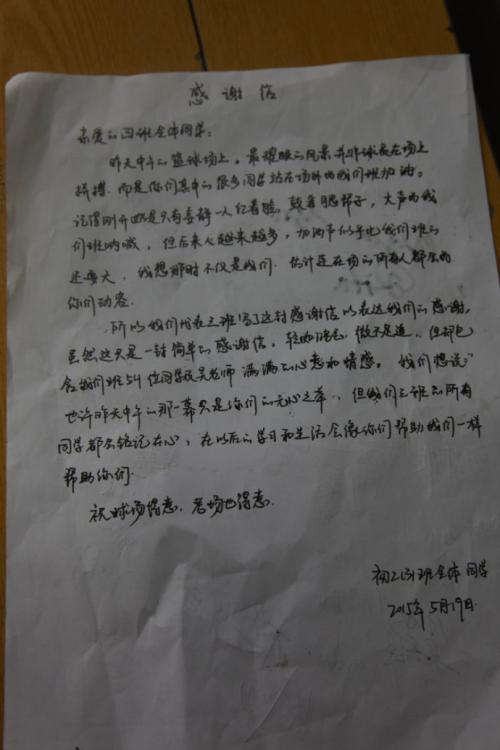 感谢信
亲爱的四班全体同学：
昨天中午的篮球场上，最耀眼的风景并非球员在场上
拼搏，而是你们其中的很多同学站在场外为我们班加油。
记得刚开始是只有喜静一人红着脸，鼓着腮帮子，大声为我
们班呐喊，但后来人越来越多，加油声似乎比我们班的
还要大，我想那时不仅是我们，估计连在场的所有人都会为
你们动容。
所以我们代表三班写了这封感谢信以表达我们的感谢。
虽然这只是一封简单的感谢信，轻如鸿毛，微不足道，但却包
含我们班54位同学及吴老师满满的心意和情感。我们想说
也许昨天中午的那一幕只是你们的无心之举，但我们三班的所有
同学都会铭记在心，在以后的学习和生活会像你们帮助我们一样
帮助你们。
祝球场得意，考场也得意。
初二(3)班全体同学
2015年5月19日